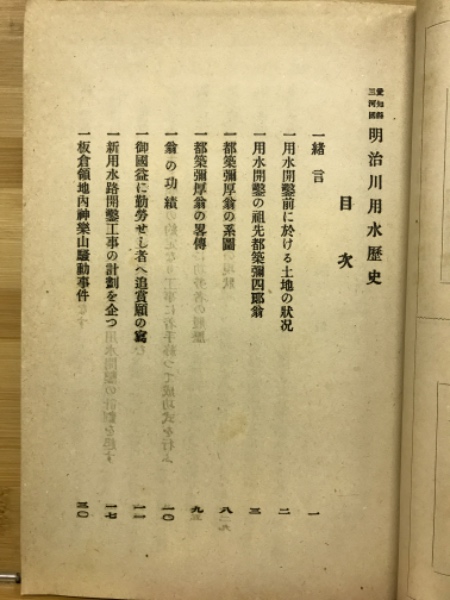 愛知縣
三河國
明治川用水歷史
目次
一緒言 一
一用水開鑿前に於ける土地の狀況 二
一用水開鑿の祖先都築彌四郞翁 三
一都築彌厚翁の系圖 八
一都築彌厚翁の畧傳 九
一翁の功績 一〇
一御國益に勤勞せし者へ追賞願の寫 一一
一新用水路開鑿工事の計劃を企つ 一七
一板倉領地內神樂山騷動事件 三〇